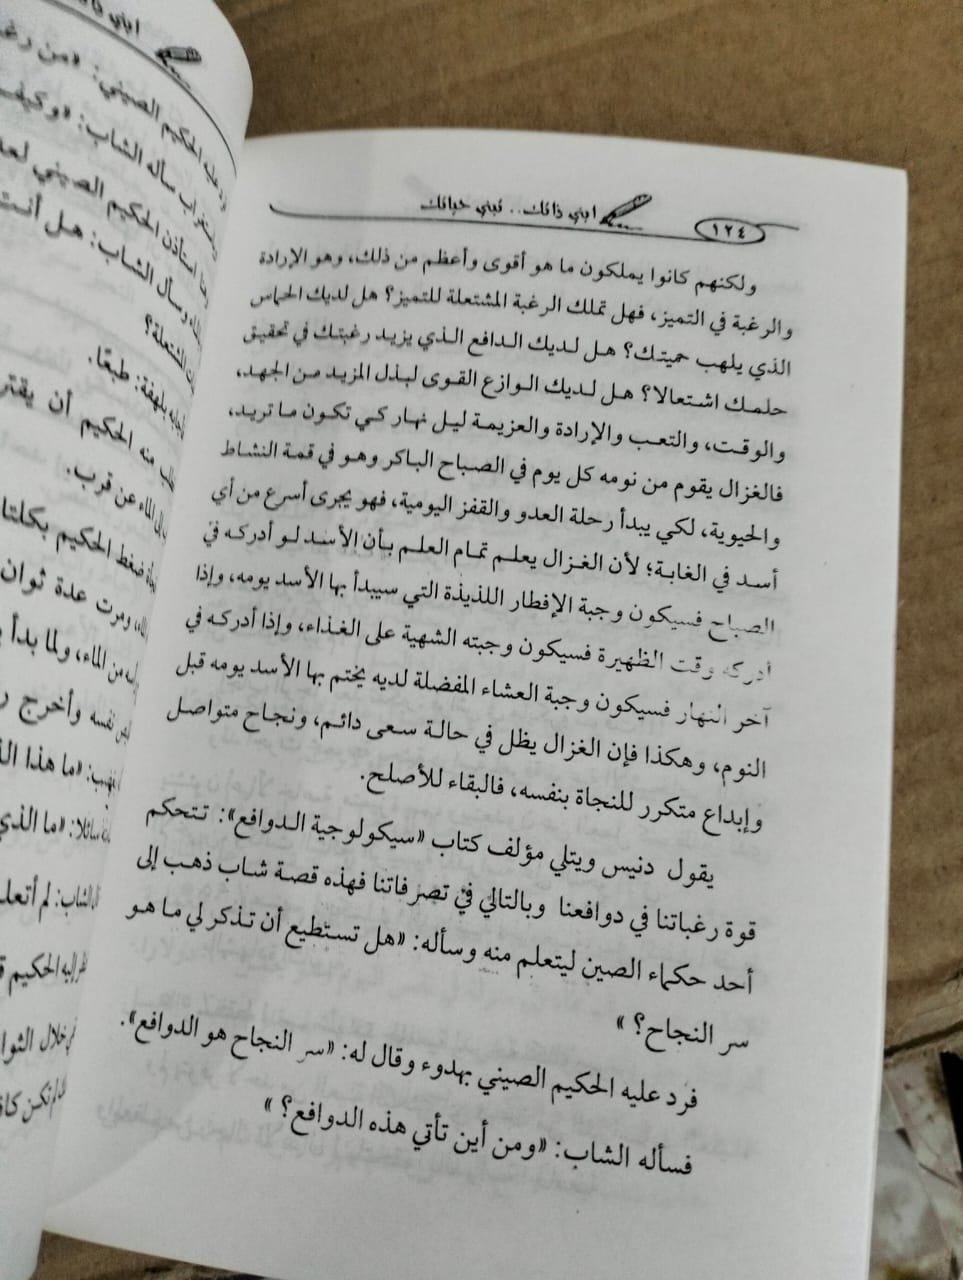 ١٢٤
ابني ذاتك.. تبني حياتك
ولكنهم كانوا يملكون ما هو أقوى وأعظم من ذلك، وهو الإرادة
والرغبة في التميز، فهل تملك الرغبة المشتعلة للتميز؟ هل لديك الحماس
الذي يلهب حميتك؟ هل لديك الدافع الذي يزيد رغبتك في تحقيق
حلمك اشتعالا؟ هل لديك الوازع القوى لبذل المزيد من الجهد،
والوقت، والتعب والإرادة والعزيمة ليل نهار كي تكون ما تريد،
فالغزال يقوم من نومه كل يوم في الصباح الباكر وهو في قمة النشاط
والحيوية، لكي يبدأ رحلة العدو والقفز اليومية، فهو يجرى أسرع من أي
أسد في الغابة؛ لأن الغزال يعلم تمام العلم بأن الأسد لو أدركه في
الصباح فسيكون وجبة الإفطار اللذيذة التي سيبدأ بها الأسد يومه، وإذا
أدركه وقت الظهيرة فسيكون وجبته الشهية على الغذاء، وإذا أدركه في
آخر النهار فسيكون وجبة العشاء المفضلة لديه يختم بها الأسد يومه قبل
النوم، وهكذا فإن الغزال يظل في حالة سعى دائم، ونجاح متواصل
وإبداع متكرر للنجاة بنفسه، فالبقاء للأصلح.
يقول دنيس ويتلي مؤلف كتاب «سيكولوجية الدوافع»: تتحكم
قوة رغباتنا في دوافعنا وبالتالي في تصرفاتنا فهذه قصة شاب ذهب إلى
أحد حكماء الصين ليتعلم منه وسأله: «هل تستطيع أن تذكر لي ما هو
سر النجاح؟ »
فرد عليه الحكيم الصيني بهدوء وقال له: «سر النجاح هو الدوافع».
فسأله الشاب: «ومن أين تأتي هذه الدوافع؟ »
ابني
عليه الحكيم الصيني: «من
سأله الشاب: «وكيف
استأذن الحكيم الصيني
وسأل الشاب: هل أنت
المشتعلة؟
بلهفة: طبعًا.
منه الحكيم أن
الماء عن قرب.
ضغط الحكيم بكلتا
ومرت عدة ثوان
من الماء، ولما بدأ
نفسه وأخرج
«ما هذا
سائلا: «ما الذي
الشاب: لم
إليه الحكيم
خلال
تكن